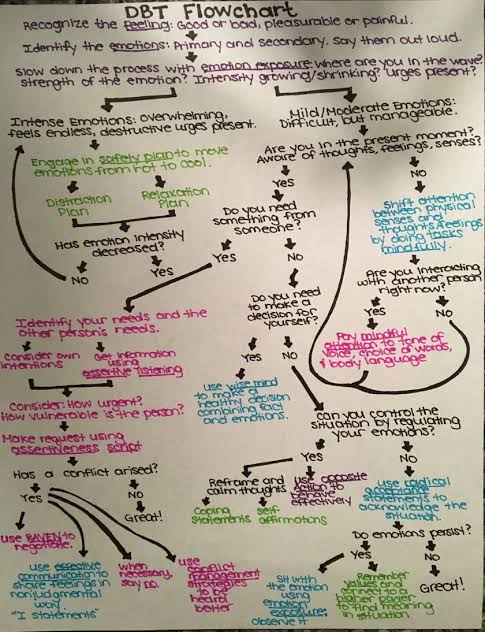 DBT Flowchart
Recognize the Feeling: Good or bad, pleasurable or painful.
Identify the emotions: Primary and secondary. Say them out loud.
Slow down the process with emotion exposure: Where are you in the wave?
strength of the emotion? Intensity growing/shrinking? urges present?
Intense Emotions: overwhelming,
feels endless, destructive urges present.
Engage in safety plan to move
emotions from hot to cool.
Distraction
Plan
Relaxation
Plan
Has emotion intensity
decreased?
NO
Yes
Mild/Moderate Emotions:
Difficult, but manageable.
Are you in the present moment?
Aware of thoughts, feelings, senses?
Yes
NO
Shift attention
between physical
senses and
thoughts/feelings
by doing tasks
mindfully.
Are you interacting
with another person
right now?
Yes
NO
Pay mindful
attention to tone of
voice, choice of words,
& body language
Do you need
something from
someone?
Yes
NO
Identify your needs and the
other person's needs.
Consider own
intentions
Get information
using
assertive listening
Consider: How urgent?
How vulnerable is the person?
Make request using
assertiveness script
Has a conflict arised?
Yes
NO
Great!
use RAVEN to
negotiate.
use effective
communication to
share feelings in
nonjudgmental
way.
"I statements"
When
necessary,
say no.
use
conflict
management
strategies
to be
heard
better
Do you need
to make a
decision for
yourself?
Yes
NO
use wise mind
to make a
healthy decision
combining fact
and emotions.
Can you control the
situation by regulating
your emotions?
Yes
NO
Reframe and
calm thoughts
Coping
statements
self-
affirmations
use opposite
action to
behave
effectively
use radical
acceptance
statements to
acknowledge the
situation.
Do emotions persist?
Yes
NO
Great!
Sit with
the emotion
using
emotion
exposure:
observe it
Remember
values and
connect to a
higher power
to find meaning
in situation